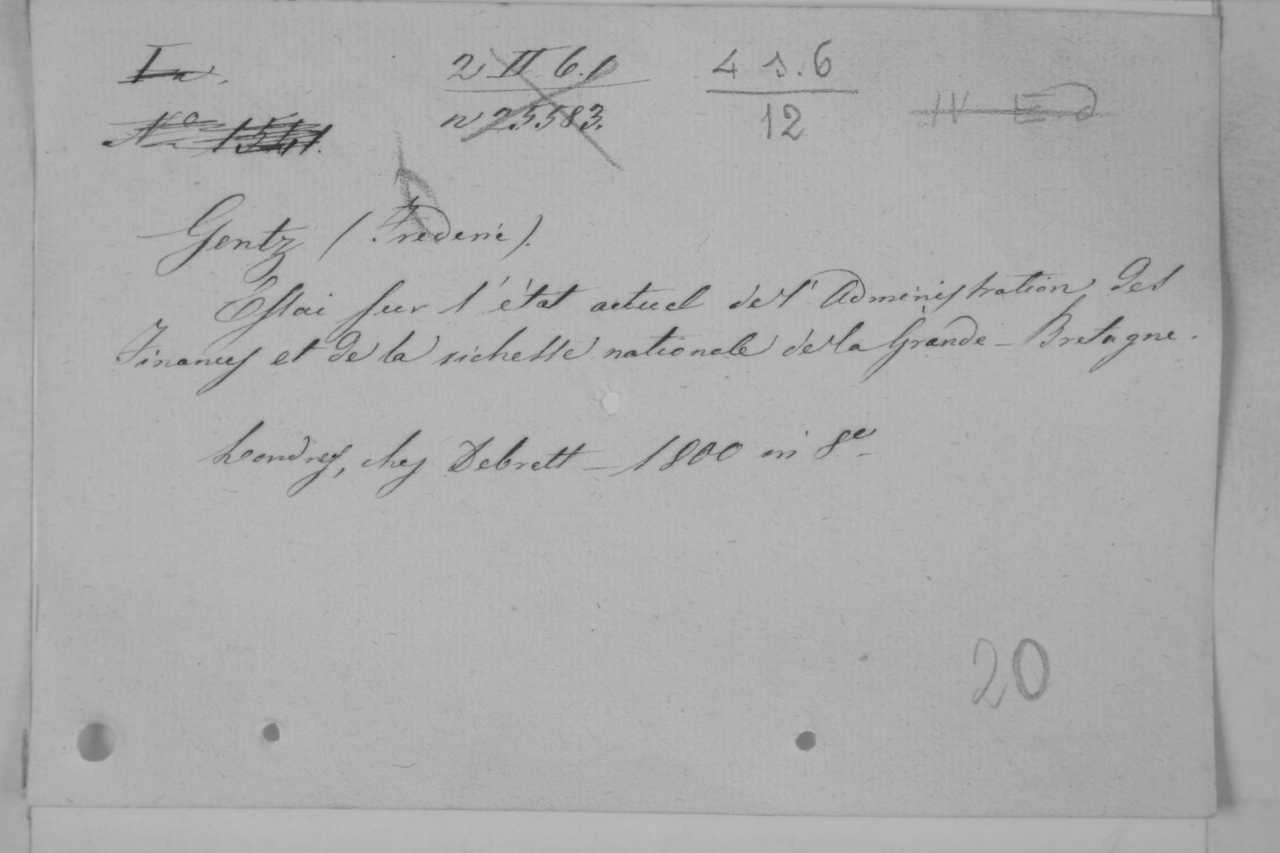 2 II 6.1
4 s. 6
n 25583.
12
Nº 1541.
Gentz (Frederic).
Essai sur l'état actuel de l'Administration des
Finances et de la richesse nationale de la Grande-Bretagne.
Londres, chez Debrett – 1800 in 8º
20